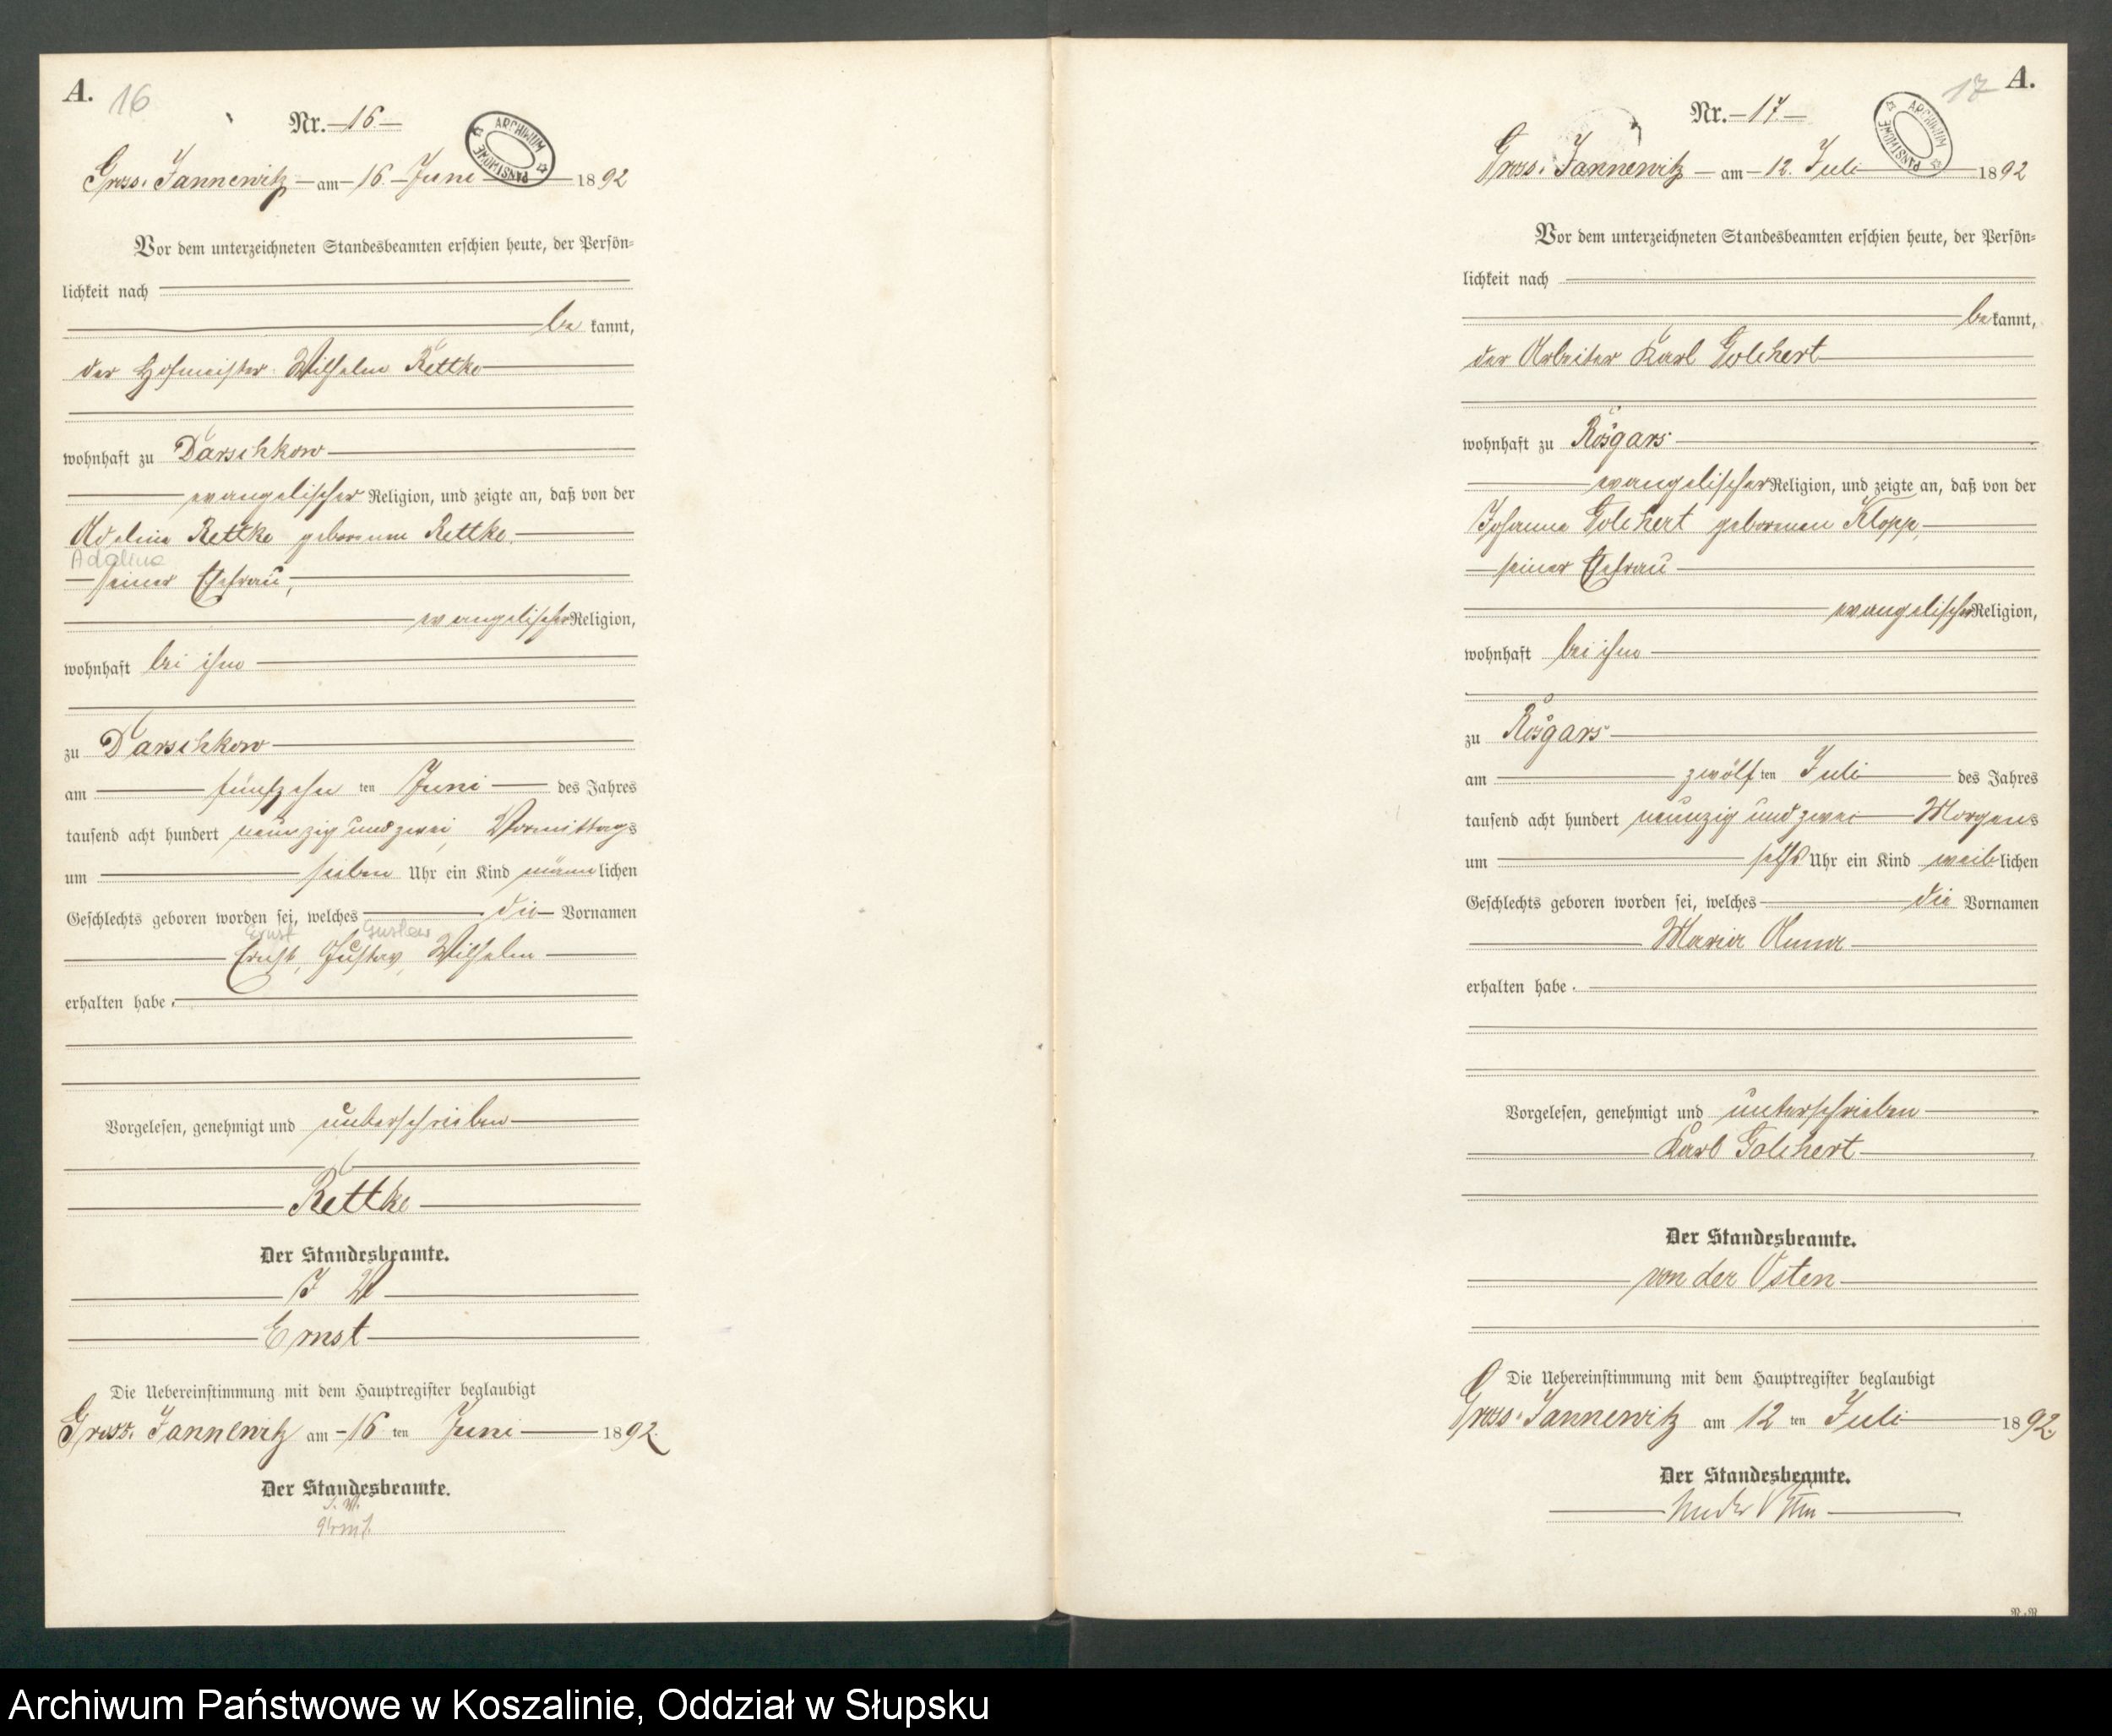 A. 16
Nr. 16.
ARCHIWUM PAŃSTWOWE
Gross. Jannewitz am 16. Juni 1892
Vor dem unterzeichneten Standesbeamten erschien heute, der Persön-
lichkeit nach
be kannt,
der Hofmeister Wilhelm Rettke
wohnhaft zu Darschkow
evangelischer Religion, und zeigte an, daß von der
Adeline Rettke geborenen Rettke,
Adeline
seiner Ehefrau,
evangelischer Religion,
wohnhaft bei ihm
zu Darschkow
am fünfzehn ten Juni des Jahres
tausend acht hundert neunzig und zwei, Vormittags
um sieben Uhr ein Kind männlichen
Geschlechts geboren worden sei, welches die Vornamen
Ernst Gustav
Ernst, Gustav, Wilhelm
erhalten habe.
Vorgelesen, genehmigt und unterschrieben
Rettke
Der Standesbeamte.
J V
Ernst
Die Uebereinstimmung mit dem Hauptregister beglaubigt
Gross. Jannewitz am 16 ten Juni 1892.
Der Standesbeamte.
J. V.
Ernst
17 A.
Nr. 17.
ARCHIWUM PAŃSTWOWE
Gross. Jannewitz am 12. Juli 1892
Vor dem unterzeichneten Standesbeamten erschien heute, der Persön-
lichkeit nach
bekannt,
der Arbeiter Karl Golchert
wohnhaft zu Rösgars
evangelischer Religion, und zeigte an, daß von der
Johanna Golchert geborenen Klopp,
seiner Ehefrau
evangelischer Religion,
wohnhaft bei ihm
zu Rösgars
am zwölf ten Juli des Jahres
tausend acht hundert neunzig und zwei Morgens
um sechs Uhr ein Kind weiblichen
Geschlechts geboren worden sei, welches die Vornamen
Maria Anna
erhalten habe.
Vorgelesen, genehmigt und unterschrieben
Karl Golchert
Der Standesbeamte.
von der Osten
Die Uebereinstimmung mit dem Hauptregister beglaubigt
Gross. Jannewitz am 12 ten Juli 1892.
Der Standesbeamte.
Archiwum Państwowe w Koszalinie, Oddział w Słupsku